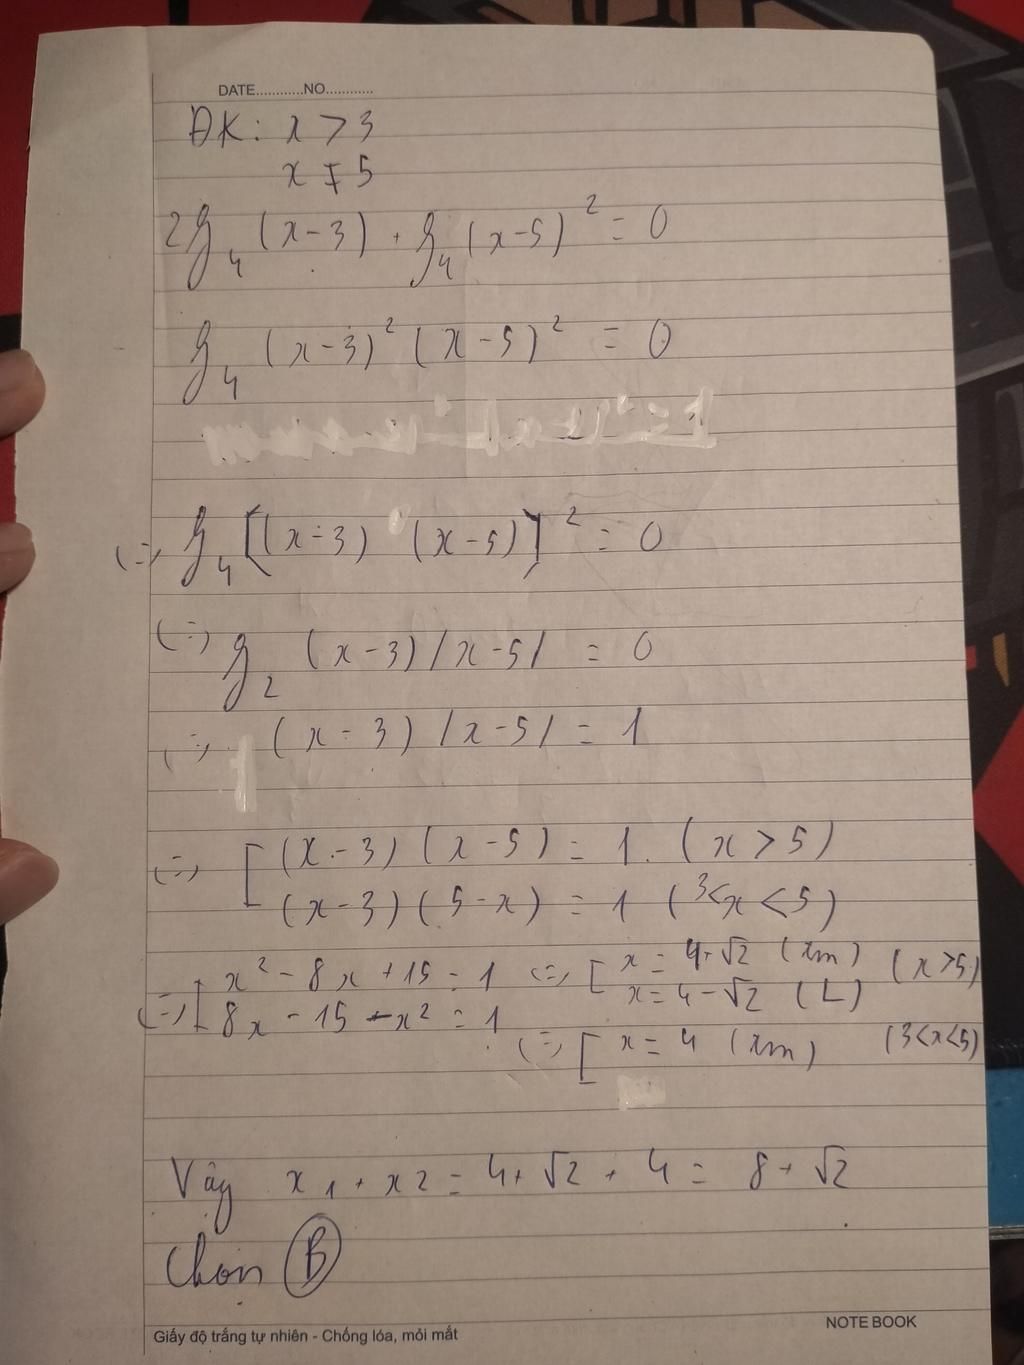 DATE............NO............
ĐK: x > 3
x ≠ 5
2log₄(x-3) + log₄(x-5)² = 0
log₄(x-3)²(x-5)² = 0
(=) log₄[(x-3)(x-5)]² = 0
(=) log₂(x-3)|x-5| = 0
(=) (x-3)|x-5| = 1
(=) [ (x-3)(x-5) = 1. (x > 5)
(x-3)(5-x) = 1 (3<x<5)
(=) [ x² - 8x + 15 = 1 (=) [ x = 4+√2 (tm) (x>5)
x = 4-√2 (L)
8x - 15 - x² = 1
(=) [ x = 4 (tm) (3<x<5)
Vậy x₁ + x2 = 4+√2 + 4 = 8+√2
Chọn B
Giấy độ trắng tự nhiên - Chống lóa, mỏi mắt
NOTE BOOK